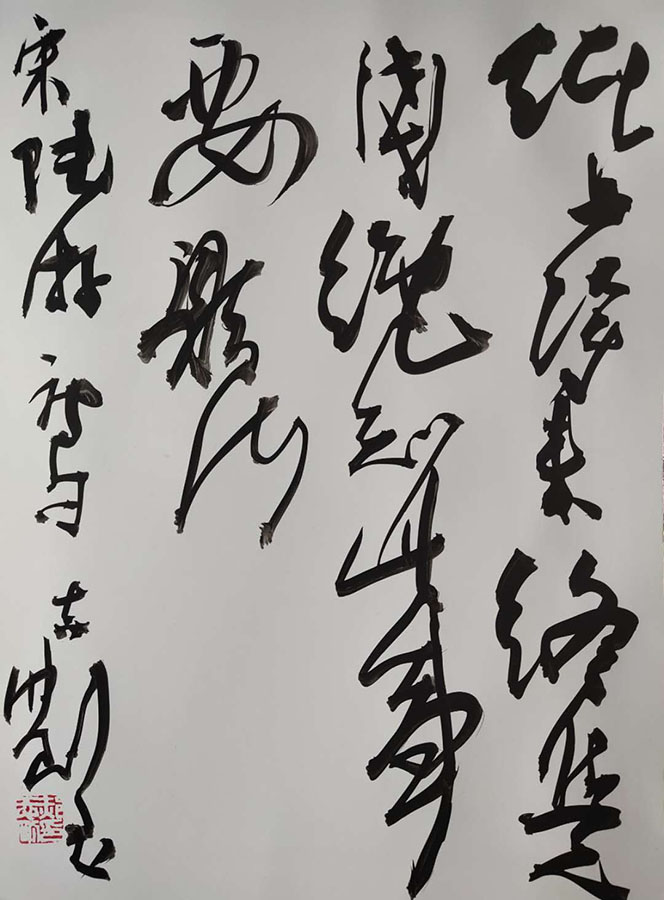 纸上得来终觉
浅绝知此事
要躬行
宋陆游诗句